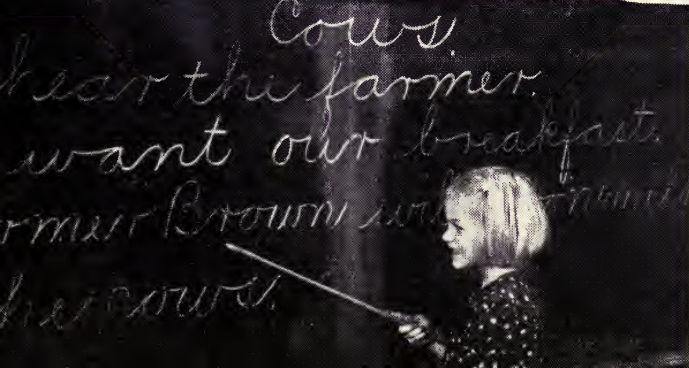 Cows.
hear the farmer.
want our breakfast.
rmer Brown
he cows.